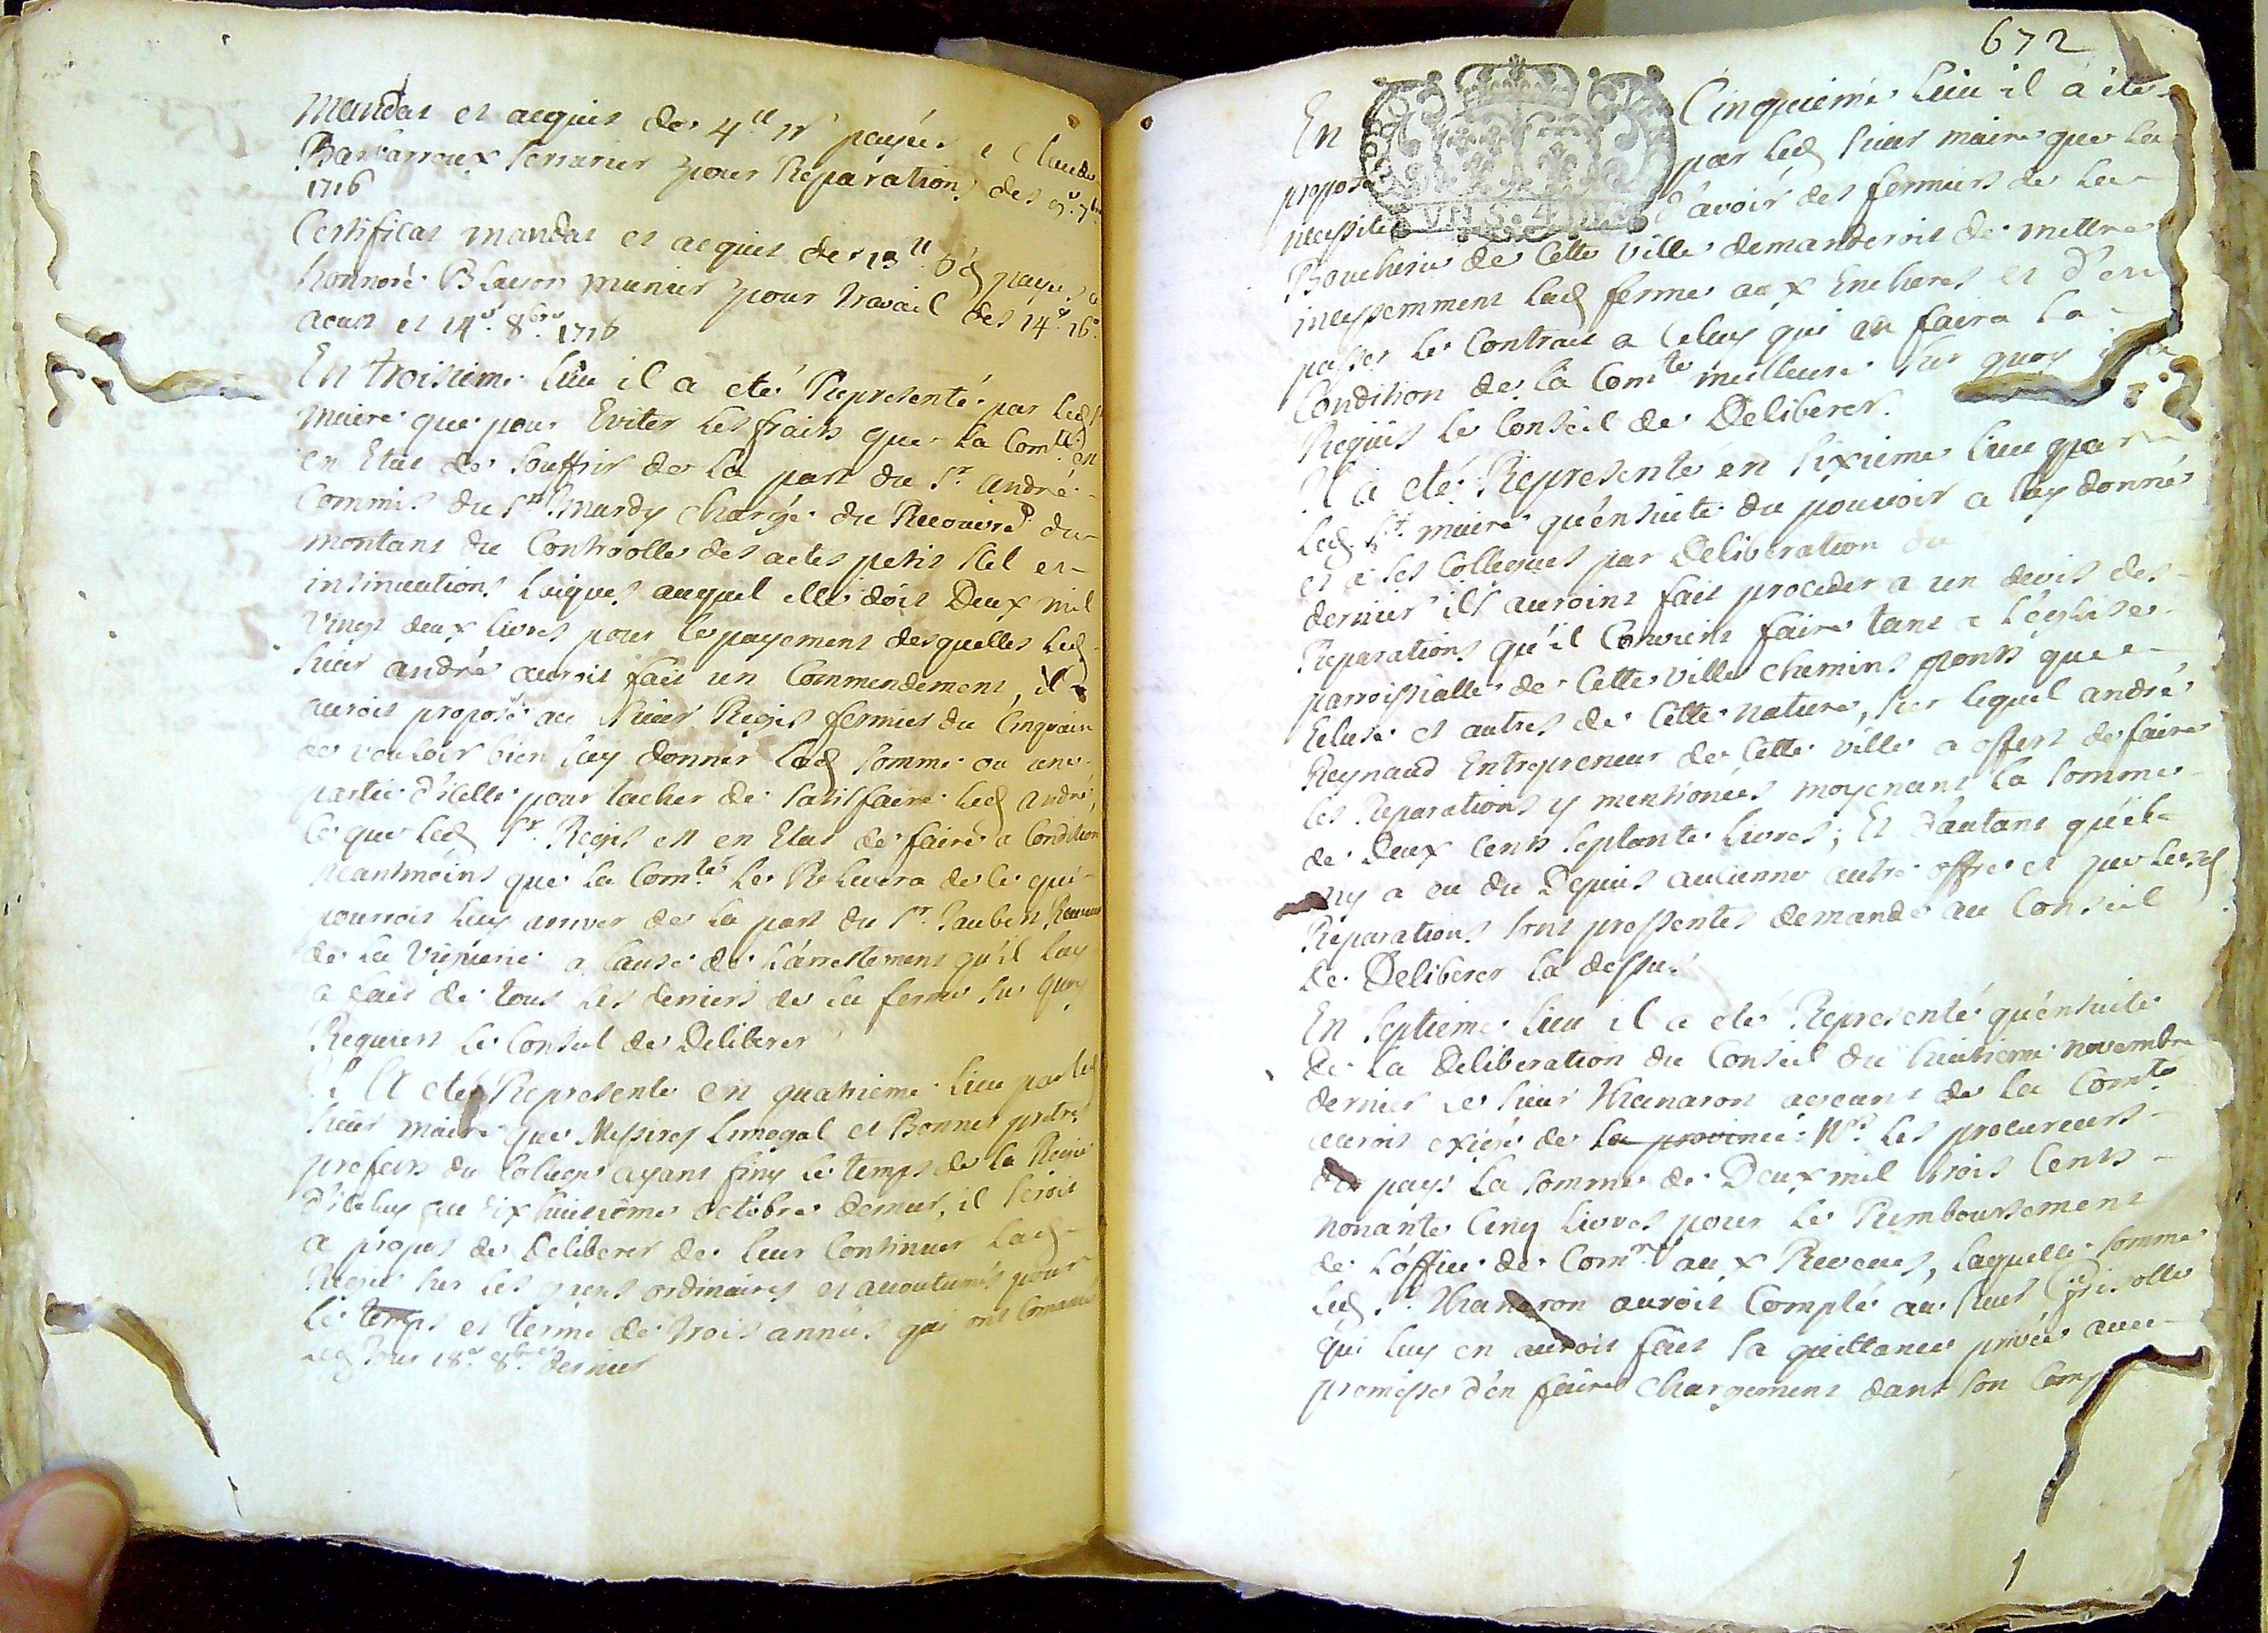 Mandat et acquit de 4ˡˡ 11ˢ payée a Claude
Barbarroux serrurier pour Reparation des
1716
Certificat mandat et acquit de 13ˡˡ 6ᵈ payes a
honnoré Blayon munier pour travail des 14ᵉ 16ᵉ
aoust et 14ᵉ 8bre 1716
En troisieme lieu il a eté Representé par led sʳ
maire que pour Eviter les fraix que la Comté en
en Etat de souffrir de la part du sʳ andré
Commis du sʳ chargé du Recouvrᵗ du
montant du Controolle des actes petit sel et
insinuations laiques auquel elle doit Deux mil
vingt deux livres pour le payement desquelles led
sieur andré auroit fait un Commendement, il
auroit proposé au sieur Regis fermier du
de vouloir bien luy donner lad somme ou une
partie d'icelle pour tacher de satisfaire led andré,
ce que led sʳ Regis est en Etat de faire a Condition
neantmoins que la Comté le Relevera de ce qui
pourroit luy arriver de la part du sʳ Jaubert
de la viguerie a cause de l'arrestement qu'il luy
a fait de tous les deniers de la ferme sur quoy
Requiert le Conseil de Deliberer
Il A eté Representé en quatrieme lieu par led
sieur maire que Messires Limogal et Bonnet pretres
prefects du College ayant finy le temps de la Regie
d'iceluy au dix huitiéme octobre dernier, il seroit
a propos de Deliberer de leur Continuer lad
Regie sur les gaens ordinaires et accoutumés pour
le temps et terme de trois années qui ont Commencé
led jour 18ᵉ 8bre dernier
672
En Cinquieme lieu il a été
proposé par led sieur maire que la
necessité d'avoir des fermiers de la
Boucherie de Cette ville demanderoit de mettre
incessemment lad ferme aux Encheres et d'en
passer le Contrait a Celuy qui en faira la
Condition de la Comté meilleure sur quoy
Requis le Conseil de Deliberer.
Il a eté Representé en sixieme lieu par
led sʳ maire qu'ensuite du pouvoir a luy donné
et a ses Collegues par Deliberation du
dernier ils auroint fait proceder a un devis des
Reparations qu'il Convient faire tant a l'eglise
parroissialle de Cette ville chemins ponts que
Ecluse et autres de Cette nature, sur lequel andré
Reynaud Entrepreneur de Cette ville a offert de faire
les Reparations y mentionées moyenant la somme
de Deux Cents septante livres; Et d'autant qu'il
ny a eu du Depuis aucunne autre offre et que lesd
Reparations sont pressentes demande au Conseil
de Deliberer la dessus
En septieme lieu il a eté Representé qu'ensuite
de la Deliberation du Conseil du huitieme novembre
dernier le sieur Thanaron ageant de la Comté
auroit exigé de la province Mʳˢ les procureurs
du pays la somme de Deux mil trois Cents
nonante Cinq livres pour le Rembourcement
de l'office de Comʳᵉ aux Reveues, laquelle somme
led sʳ Thanaron auroit Compté au sieur Grisolle
qui luy en auroit fait sa quittance privée avec
promesse d'en faire chargement dans son Comp
1